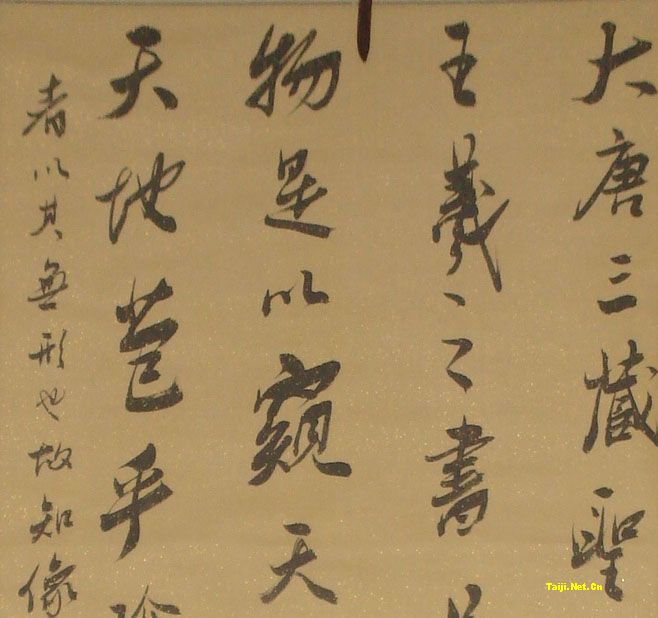 大唐三藏聖
王羲之書
物是以窺天
天地苞乎
者以其無形也故知像
Taiji.Net.Cn